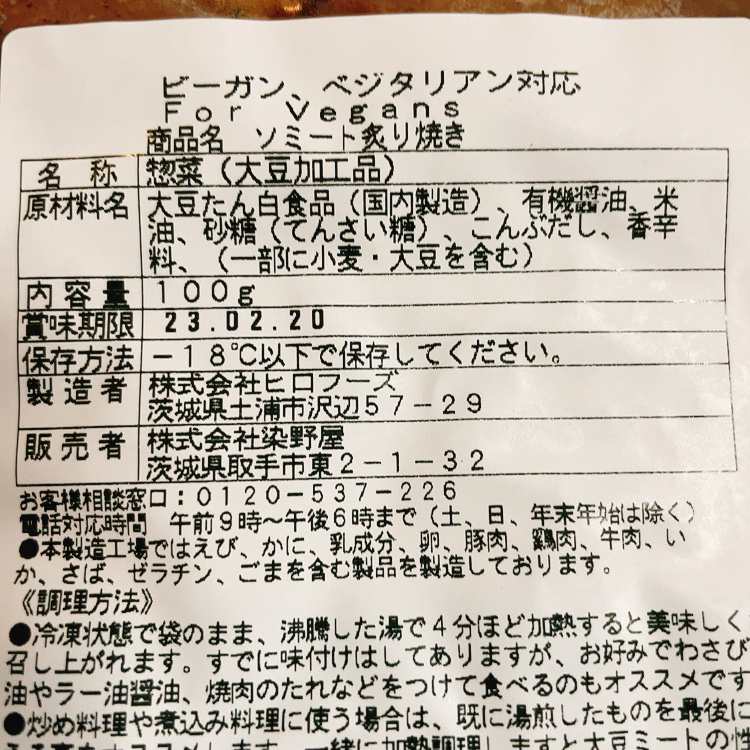 ビーガン、ベジタリアン対応
For Vegans
商品名　ソミート炙り焼き
名称 惣菜（大豆加工品）
原材料名 大豆たん白食品（国内製造）、有機醤油、米
油、砂糖（てんさい糖）、こんぶだし、香辛
料、（一部に小麦・大豆を含む）
内容量 100g
賞味期限 23.02.20
保存方法 －18℃以下で保存してください。
製造者 株式会社ヒロフーズ
茨城県土浦市沢辺57－29
販売者 株式会社染野屋
茨城県取手市東2－1－32
お客様相談窓口：0120－537－226
電話対応時間　午前9時～午後6時まで（土、日、年末年始は除く）
●本製造工場ではえび、かに、乳成分、卵、豚肉、鶏肉、牛肉、い
か、さば、ゼラチン、ごまを含む製品を製造しております。
《調理方法》
●冷凍状態で袋のまま、沸騰した湯で4分ほど加熱すると美味しく
召し上がれます。すでに味付けはしてありますが、お好みでわさび
油やラー油醤油、焼肉のたれなどをつけて食べるのもオススメです
●炒め料理や煮込み料理に使う場合は、既に湯煎したものを最後に
一緒に加熱調理しますと大豆ミートの